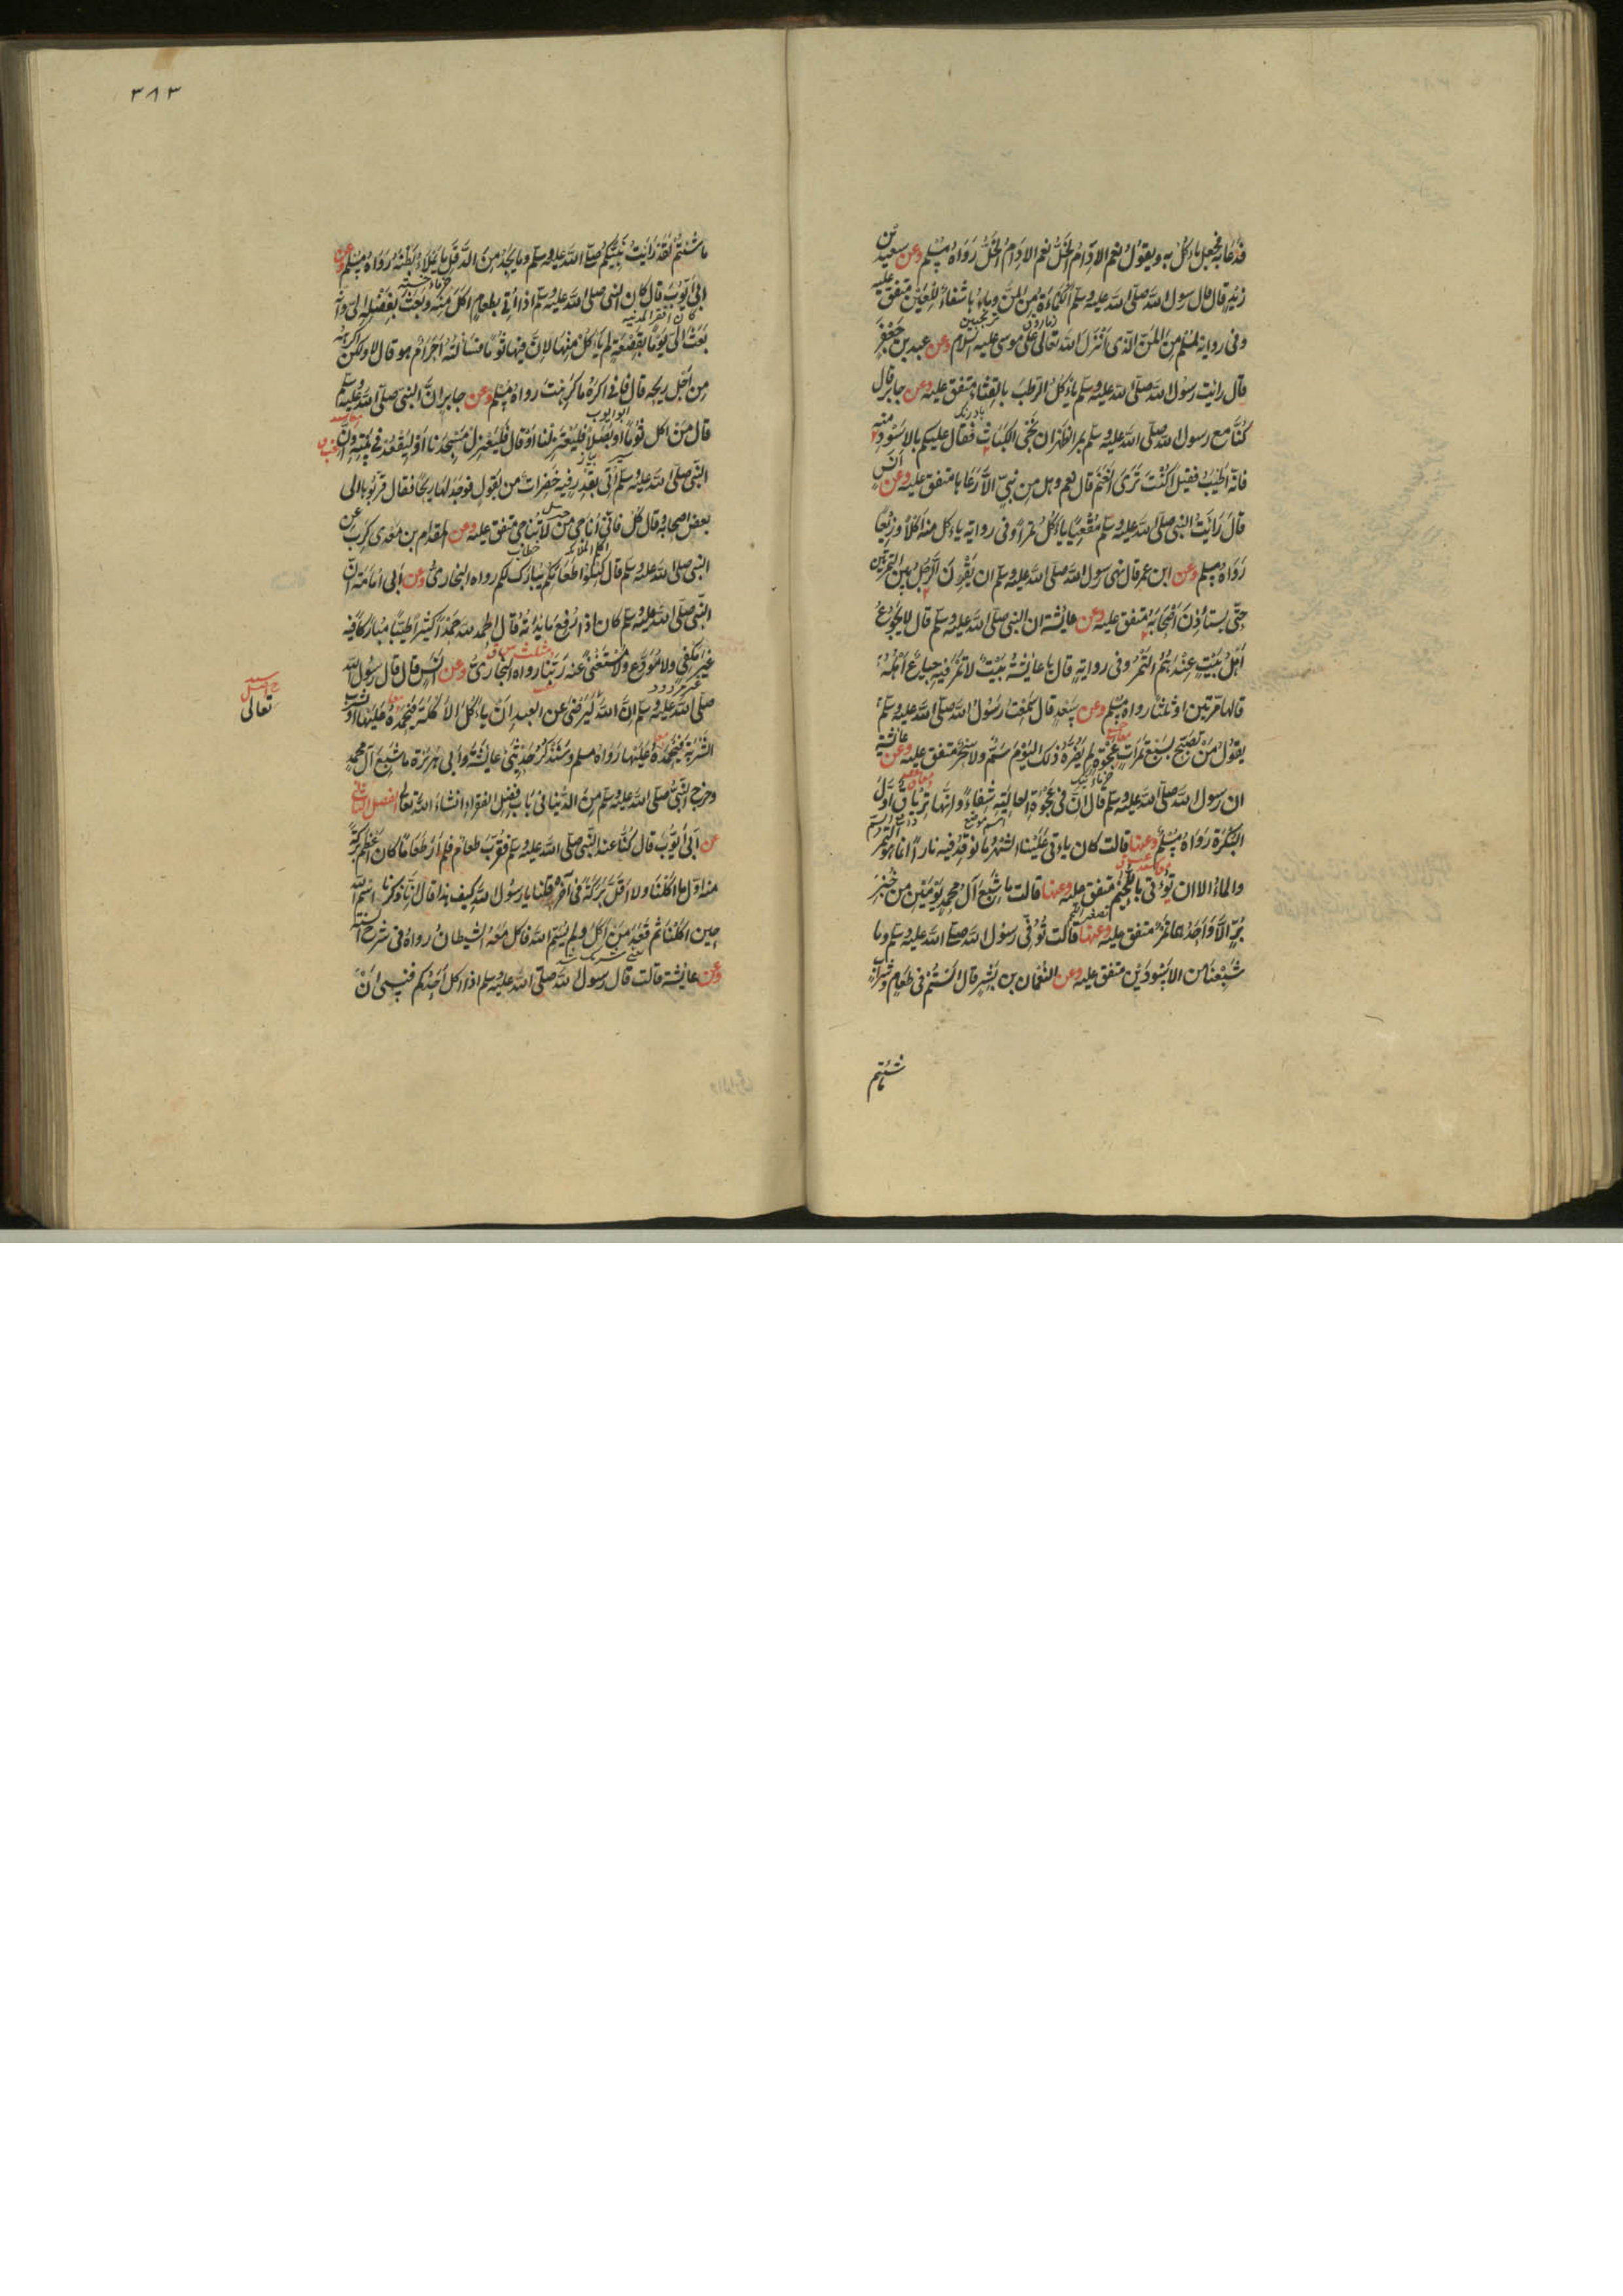 فدعا به فجعل يأكل به ويقول نعم الادام الخل نعم الادام الخل رواه مسلم وعن سعيد بن
زيد قال قال رسول الله صلى الله عليه وسلم الكمأة من المن وماءها شفاء للعين متفق عليه
وفى رواية لمسلم من المن الذى انزل الله تعالى على موسى عليه السلام وعن عبد بن جعفر
قال رايت رسول الله صلى الله عليه وسلم يأكل الرطب بالقثاء متفق عليه وعن جابر قال
كنا مع رسول الله صلى الله عليه وسلم بمر الظهران نجنى الكباث فقال عليكم بالاسود منه
فانه اطيب فقيل اكنت ترى الغنم قال نعم وهل من نبى الا رعاها متفق عليه وعن انس
قال رايت النبى صلى الله عليه وسلم مقعيا ياءكل تمرا وفى رواية ياءكل منه اكلا ذريعا
رواه مسلم وعن ابن عمر قال نهى رسول الله صلى الله عليه وسلم ان يقرن الرجل بين التمرتين
حتى يستاذن اصحابه متفق عليه وعن عايشة ان النبى صلى الله عليه وسلم قال لا يجوع
اهل بيت عندهم التمر وفى رواية قال يا عايشة بيت لا تمر فيه جياع اهله
قالها مرتين او ثلثا رواه مسلم وعن سعد قال سمعت رسول الله صلى الله عليه وسلم
يقول من تصبح بسبع تمرات عجوة لم يضره ذلك اليوم سم ولا سحر متفق عليه وعن عائشة
ان رسول الله صلى الله عليه وسلم قال ان فى عجوة العالية شفاء وانها ترياق اول
البكرة رواه مسلم وعنها قالت كان ياءتى علينا الشهر ما نوقد فيه نارا انما هو التمر
والماء الا ان يؤتى باللحيم متفق عليه وعنها قالت ما شبع آل محمد يومين من خبز
بر الا واحدهما تمر متفق عليه وعنها قالت توفى رسول الله صلى الله عليه وسلم وما
شبعنا من الاسودين متفق عليه وعن النعمان بن بشير قال الستم فى طعام وشراب
ما شئتم
٣٨٣
ما شئتم لقد رايت نبيكم صلى الله عليه وسلم وما يجد من الدقل ما يملاء بطنه رواه مسلم وعن
ابى ايوب قال كان النبى صلى الله عليه وسلم اذا اتى بطعام اكل منه وبعث بفضله الى وانه
بعث الى يوما بقصعة لم ياكل منها لان فيها ثوما فسألته احرام هو قال لا ولكن اكرهه
من اجل ريحه قال فانى اكره ما كرهت رواه مسلم وعن جابر ان النبى صلى الله عليه وسلم
قال من اكل ثوما او بصلا فليعتزلنا او قال فليعتزل مسجدنا او ليقعد فى بيته وان
النبى صلى الله عليه وسلم اتى بقدر فيه خضرات من بقول فوجد لها ريحا فقال قربوها الى
بعض اصحابه وقال كل فانى اناجى من لا تناجى متفق عليه وعن المقدام بن معدى كرب عن
النبى صلى الله عليه وسلم قال كيلوا طعامكم يبارك لكم رواه البخارى وعن ابى امامة ان
النبى صلى الله عليه وسلم كان اذا رفع مائدته قال الحمد لله حمدا كثيرا طيبا مباركا فيه
غير مكفى ولا مودع ولا مستغنى عنه ربنا رواه البخارى وعن انس قال قال رسول الله
صلى الله عليه وسلم ان الله ليرضى عن العبد ان ياءكل الاكلة فيحمده عليها او يشرب
الشربة فيحمده عليها رواه مسلم وسنذكر حديثى عايشة وابى هريرة ما شبع آل محمد
وخرج النبى صلى الله عليه وسلم من الدنيا فى باب فضل الفقراء انشاء الله تعالى الفصل الثانى
تعالى
عن ابى ايوب قال كنا عند النبى صلى الله عليه وسلم فقرب طعام فلم ار طعاما كان اعظم بركة
منه اول ما اكلنا ولا اقل بركة فى آخره قلنا يا رسول الله كيف هذا قال انا ذكرنا اسم الله
حين اكلنا ثم قعد من اكل ولم يسم الله فاكل معه الشيطان رواه فى شرح السنة
وعن عايشة قالت قال رسول الله صلى الله عليه وسلم اذا اكل احدكم فنسى ان